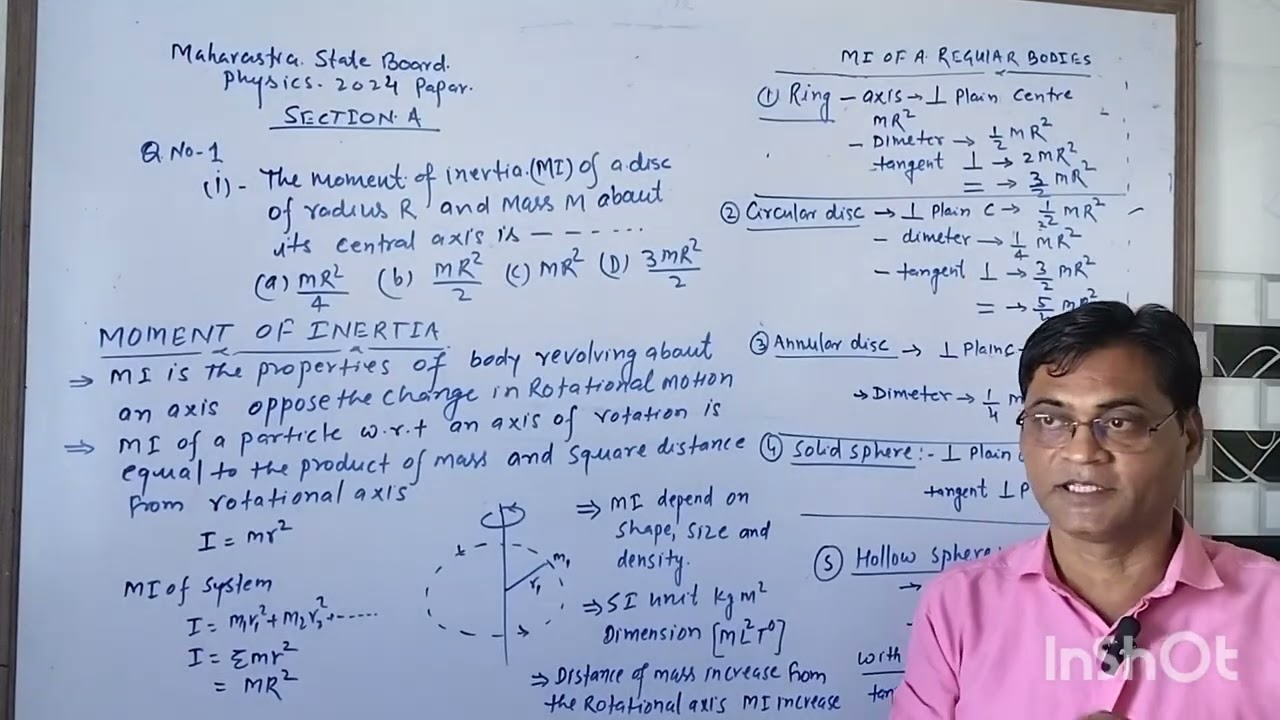 Maharastra State Board.
Physics. 2024 Papar.
SECTION. A
Q No-1
(i) - The moment of inertia.(MI) of a disc
of radius R and Mass M abaut
its central axis is - - - - - - ...
(a) MR²/4 (b) MR²/2 (C) MR² (D) 3MR²/2
MOMENT OF INERTIA
⇒ MI is the properties of body revolving abaut
an axis oppose the change in Rotational motion
⇒ MI of a particle w.r.t an axis of rotation is
equal to the product of mass and square distance
from rotational axis
I = mr²
MI of system
I = m₁r₁² + m₂r₂² + ......
I = Σmr²
= MR²
m₁
r₁
⇒ MI depend on
shape, size and
density.
⇒ SI unit kg m²
Dimension [ML²T⁰]
⇒ Distance of mass increase from
the Rotational axis MI increase
MI OF A REGULAR BODIES
① Ring - axis → ⊥ Plain centre
MR²
- Dimeter → 1/2 MR²
tangent ⊥ → 2MR²
= → 3/2 MR²
② Circular disc → ⊥ Plain C → 1/2 MR²
- dimeter → 1/4 MR²
- tangent ⊥ → 3/2 MR²
= → 5/ MR²
③ Annular disc → ⊥ Plain C
→ Dimeter → 1/4 M
④ Solid sphere :- ⊥ Plain
tangent ⊥ P
⑤ Hollow sphere:
with
tan
InShOt